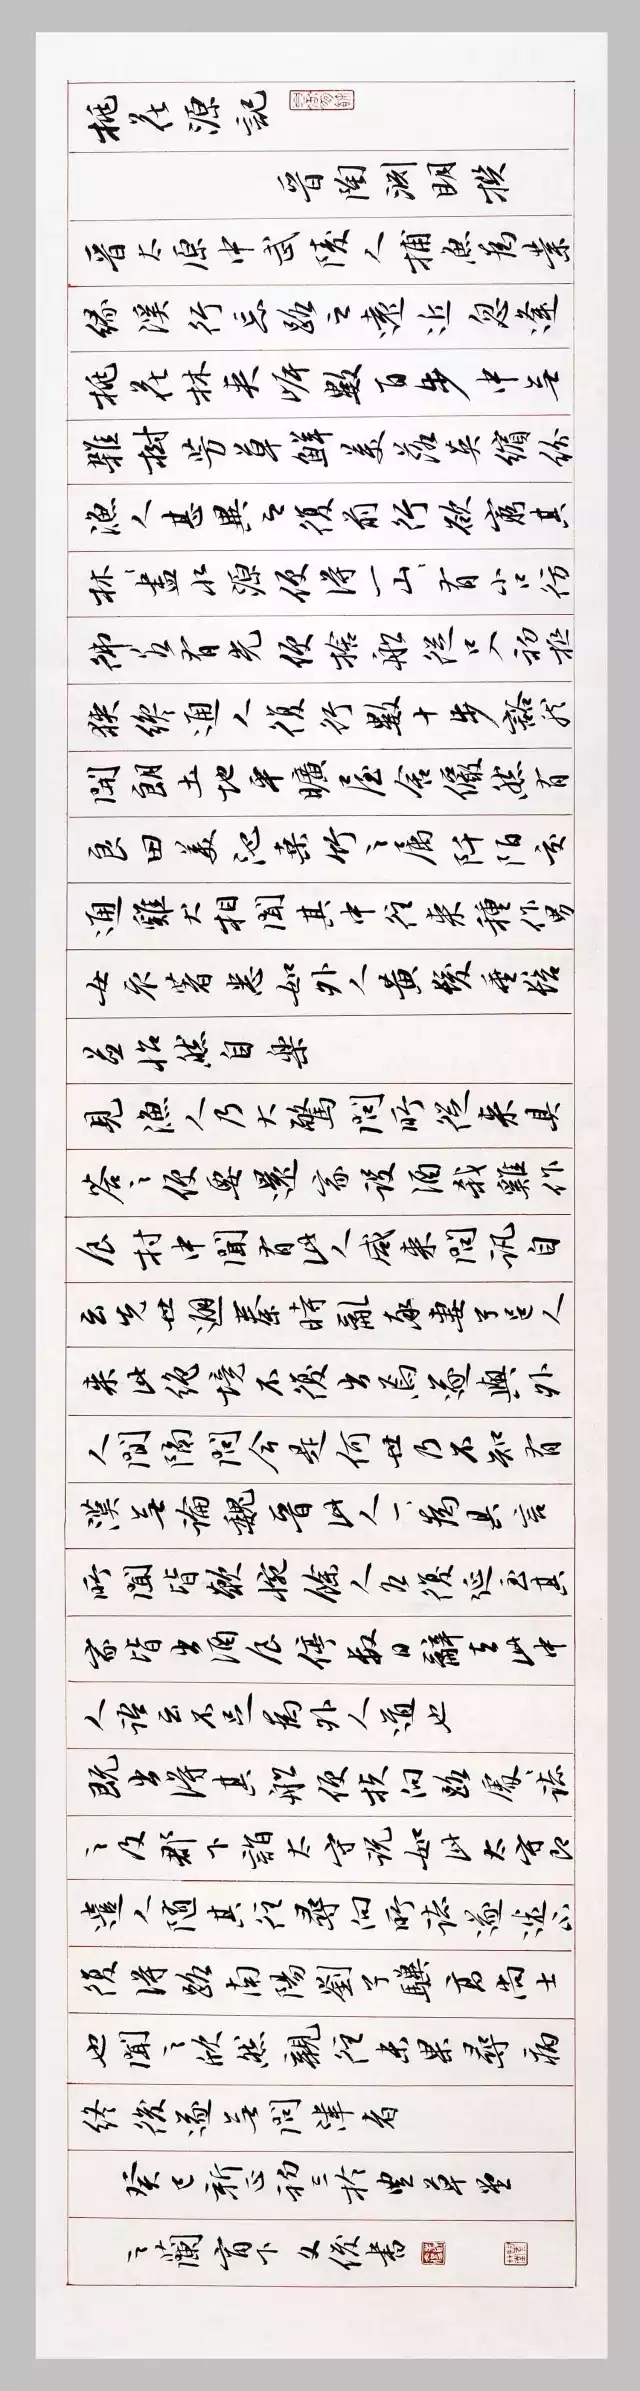 桃花源記
晉陶淵明撰
晉太原中武陵人捕魚為業
緣溪行忘路之遠近忽逢
桃花林夾岸數百步中無
雜樹芳草鮮美落英繽紛
漁人甚異之復前行欲窮其
林、盡水源便得一山、有小口彷
彿若有光便捨船從口入初極
狹纔通人復行數十步豁然
開朗土地平曠屋舍儼然有
良田美池桑竹之屬阡陌交
通雞犬相聞其中往來種作男
女衣著悉如外人黃髮垂髫
並怡然自樂
見漁人乃大驚問所從來具
答之便要還家設酒殺雞作
食村中聞有此人咸來問訊自
云先世避秦時亂率妻子邑人
來此絕境不復出焉遂與外
人間隔問今是何世乃不知有
漢無論魏晉此人一、為具言
所聞皆歎惋餘人各復延至其
家皆出酒食停數日辭去此中
人語云不足為外人道也
既出得其船便扶向路處、誌
之及郡下詣太守說如此太守即
遣人隨其往尋向所誌遂迷不
復得路南陽劉子驥高尚士
也聞之欣然親往未果尋病
終後遂無問津者
癸巳新正初三於草堂
之蘭窗下文俊書